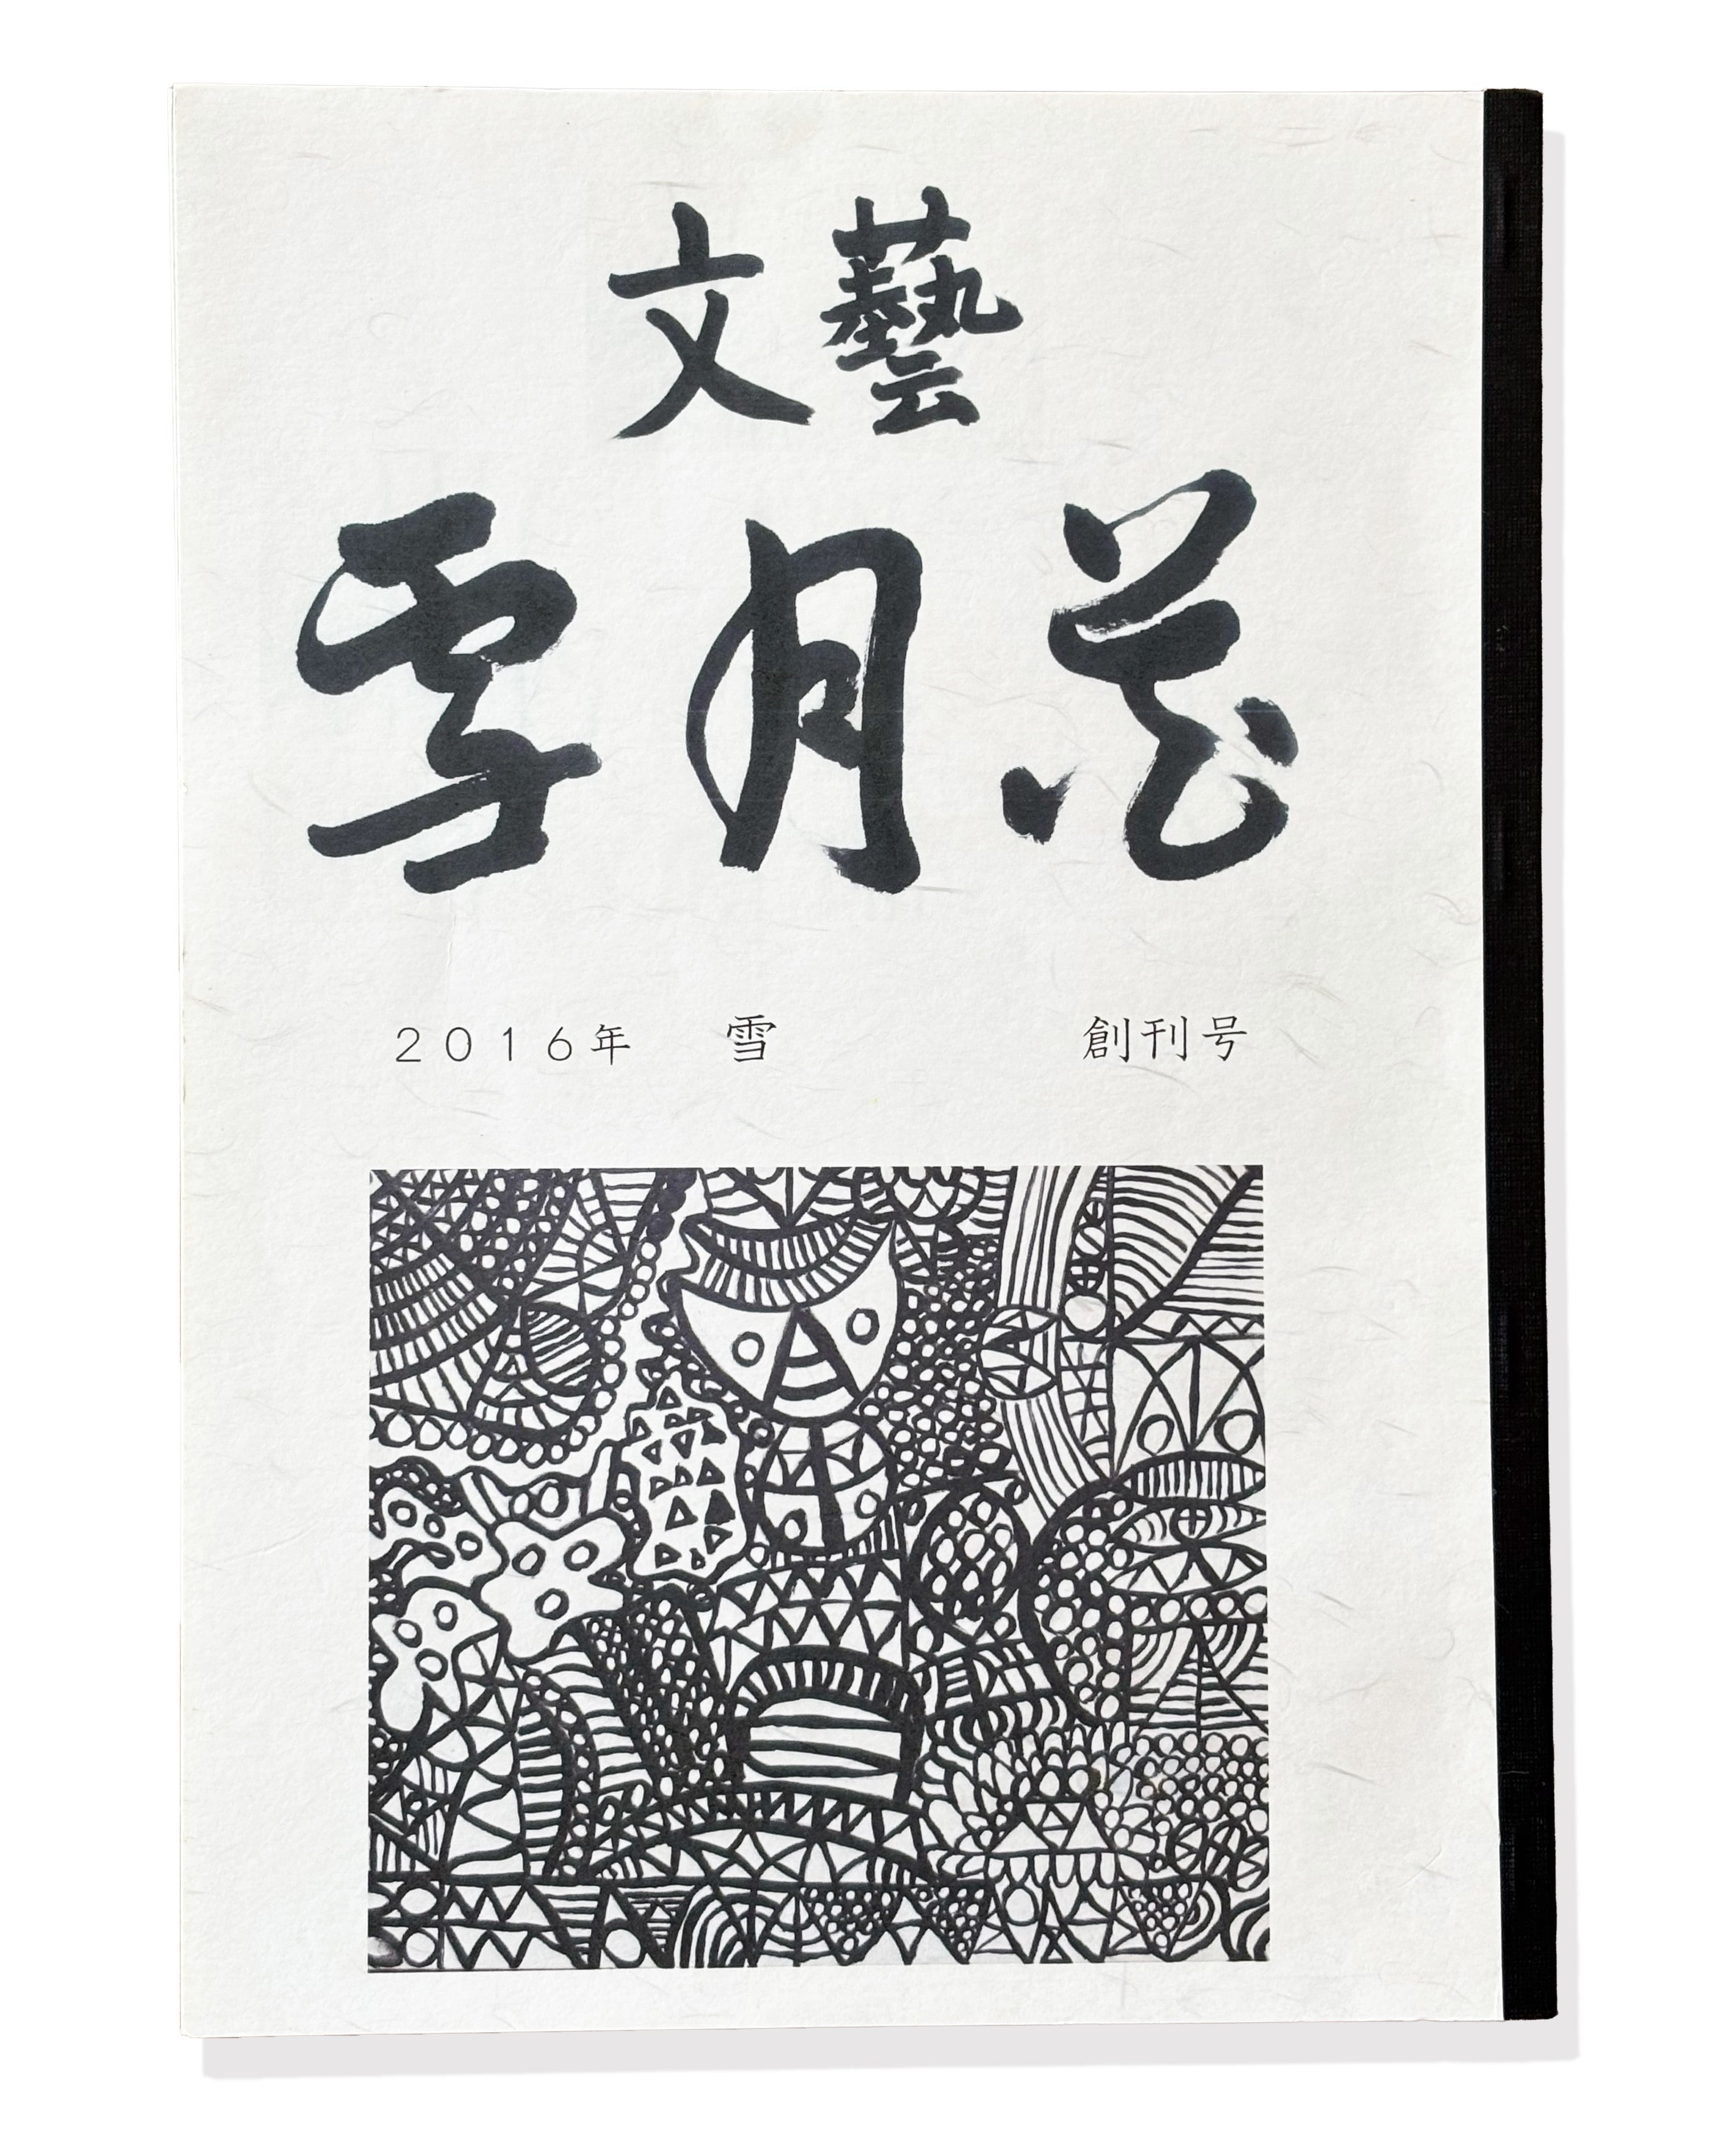 文藝
雪月花
2016年　雪　創刊号